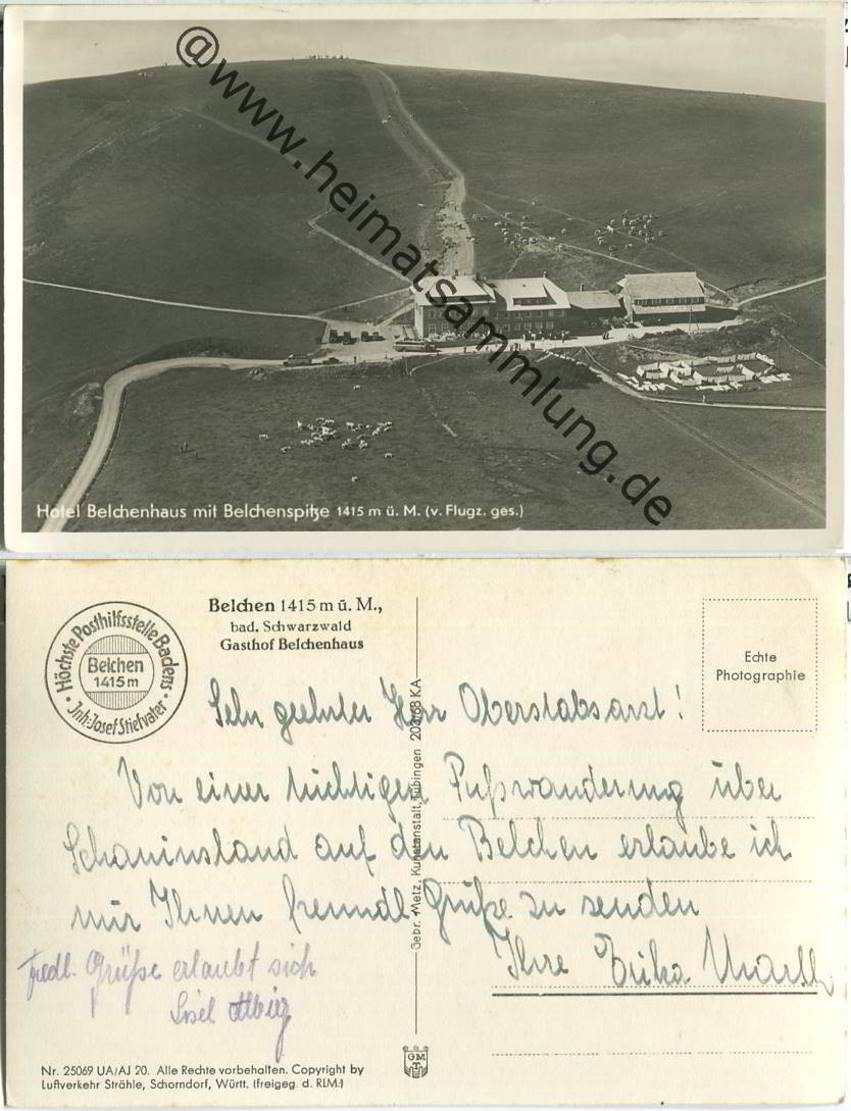 @www.heimatsammlung.de
Hotel Belchenhaus mit Belchenspitze 1415 m ü. M. (v. Flugz. ges.)
Höchste Posthilfsstelle Badens
Belchen
1415 m
Inh: Josef Stiefvater
Belchen 1415 m ü. M.,
bad. Schwarzwald
Gasthof Belchenhaus
Echte
Photographie
Sehr geehrter Herr Oberstabsarzt!
Von einer tüchtigen Fußwanderung über
Schauinsland auf den Belchen erlaube ich
mir Ihnen freundl. Grüße zu senden
Ihre Erika
Fredl. Grüße erlaubt sich
Gebr. Metz, Kunstanstalt, Tübingen
GMT
Nr. 25069 UA/AJ 20. Alle Rechte vorbehalten. Copyright by
Luftverkehr Strähle, Schorndorf, Württ. (freigeg. d. RLM.)